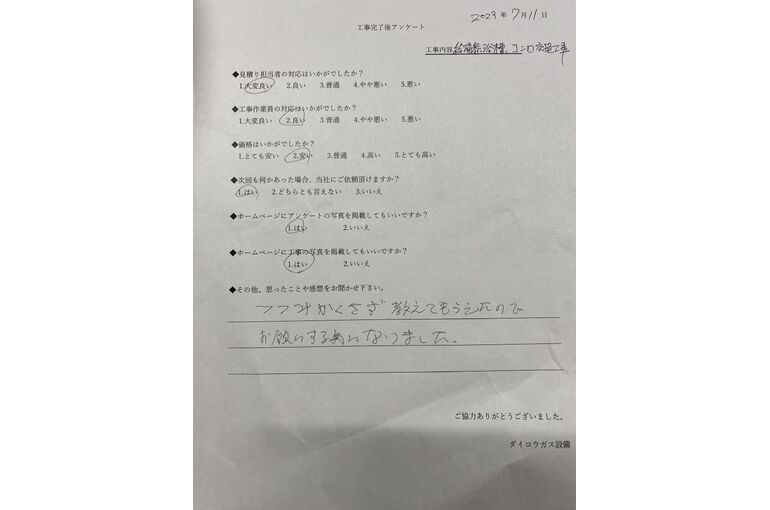 2023年7月11日
工事完了後アンケート
工事内容 給湯器、浴槽、コンロ交換工事
◆見積り担当者の対応はいかがでしたか?
1.大変良い 2.良い 3.普通 4.やや悪い 5.悪い
◆工事作業員の対応はいかがでしたか?
1.大変良い 2.良い 3.普通 4.やや悪い 5.悪い
◆価格はいかがでしたか?
1.とても安い 2.安い 3.普通 4.高い 5.とても高い
◆次回も何かあった場合、当社にご依頼頂けますか?
1.はい 2.どちらとも言えない 3.いいえ
◆ホームページにアンケートの写真を掲載してもいいですか?
1.はい 2.いいえ
◆ホームページに工事の写真を掲載してもいいですか?
1.はい 2.いいえ
◆その他、思ったことや感想をお聞かせ下さい。
つつみかくさず教えてもらえたので
お願いする気になりました。
ご協力ありがとうございました。
ダイコウガス設備